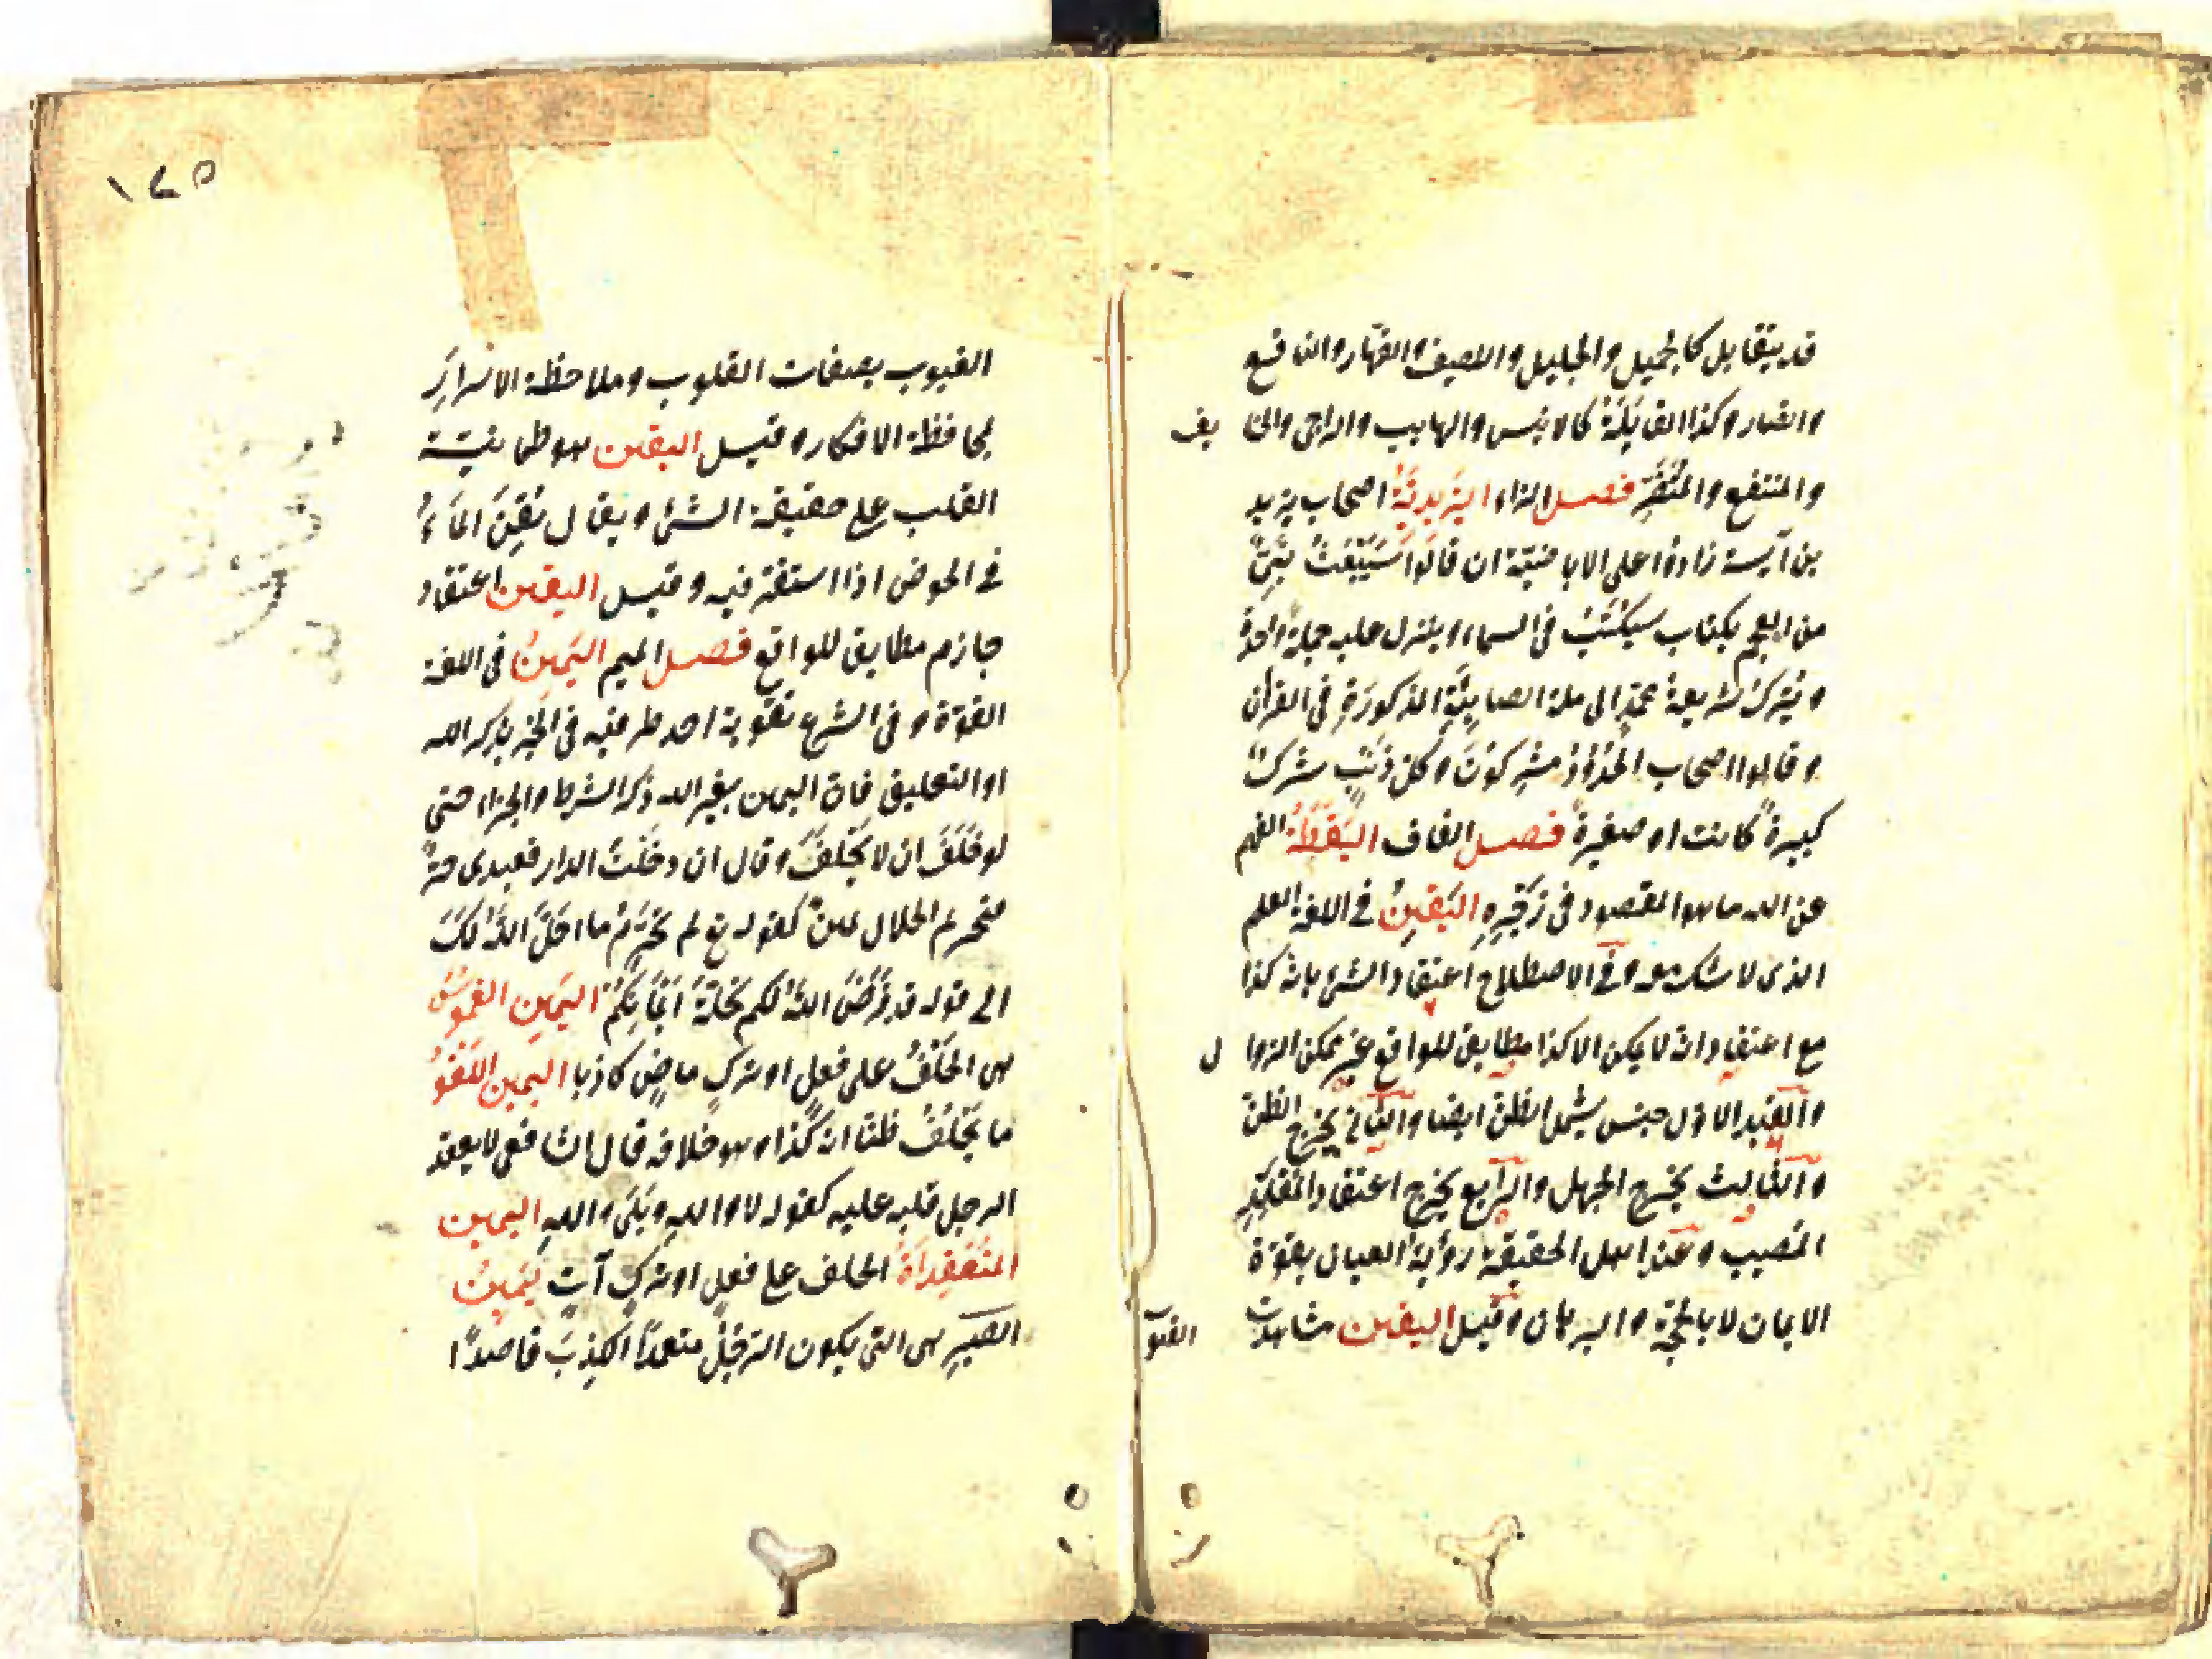 قد يتقابل كالجميل والجليل واللطيف والقهار والنافع
والضار وكذا القابلة كالانيس والهايب والراجي والخايف
والمنتفع والمتضرر فصل الزاء اليزيدية اصحاب يزيد
بن انيسة زادوا على الاباضية ان قالوا سيبعث نبي
من العجم بكتاب سيكتب في السماء وينزل عليه جملة واحدة
ويترك شريعة محمد الى ملة الصابئية المذكورة في القرآن
وقالوا اصحاب الحدود مشركون وكل ذنب شرك
كبيرة كانت او صغيرة فصل القاف اليقظة الفهم
عن الله ما هو المقصود في زجره اليقين في اللغة العلم
الذي لا شك معه وفي الاصطلاح اعتقاد الشئ بانه كذا
مع اعتقاد انه لا يمكن الا كذا مطابق للواقع غير ممكن الزوال
والقيد الاول جنس يشمل الظن ايضا والثاني يخرج الظن
والثالث يخرج الجهل والرابع يخرج اعتقاد المقلد
المصيب وعند اهل الحقيقة رؤية العيان بقوة
الايمان لا بالحجة والبرهان وقيل اليقين مشاهدة
الغيو
١٢٥
الغيوب بصفات القلوب وملاحظة الاسرار
بمحافظة الافكار وقيل اليقين هو طمانينة
القلب على حقيقة الشئ ويقال يقن الماء
في الحوض اذا استقر فيه وقيل اليقين اعتقاد
جازم مطابق للواقع فصل الميم اليمين في اللغة
القوة وفي الشرع تقوية احد طرفيه في الخبر بذكر الله
او التعليق فان اليمين بغير الله ذكر الشرط والجزاء حتى
لو حلف ان لا يحلف وقال ان دخلت الدار فعبدي حر
فتحريم الحلال يمين كقوله تع لم تحرم ما احل الله لك
الى قوله قد فرض الله لكم تحلة ايمانكم اليمين الغموس
هي الحلف على فعل او ترك ماض كاذبا اليمين اللغو
ما يحلف ظنا انه كذا وهو خلافه قال الشافعي لا يعقد
الرجل قلبه عليه كقوله لا والله وبلى والله اليمين
المنعقداة الحلف على فعل او ترك آت يمين
الصبر هي التي يكون الرجل متعمدا الكذب قاصدا